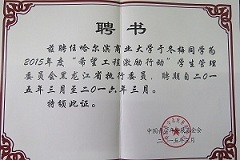 聘书
兹聘任哈尔滨商业大学于冬梅同学为
2015年度“希望工程激励行动”学生管理
委员会黑龙江省执行委员，聘期自二〇一
五年三月至二〇一六年三月。
特颁此证。
中国青少年发展基金会
二〇一五年三月